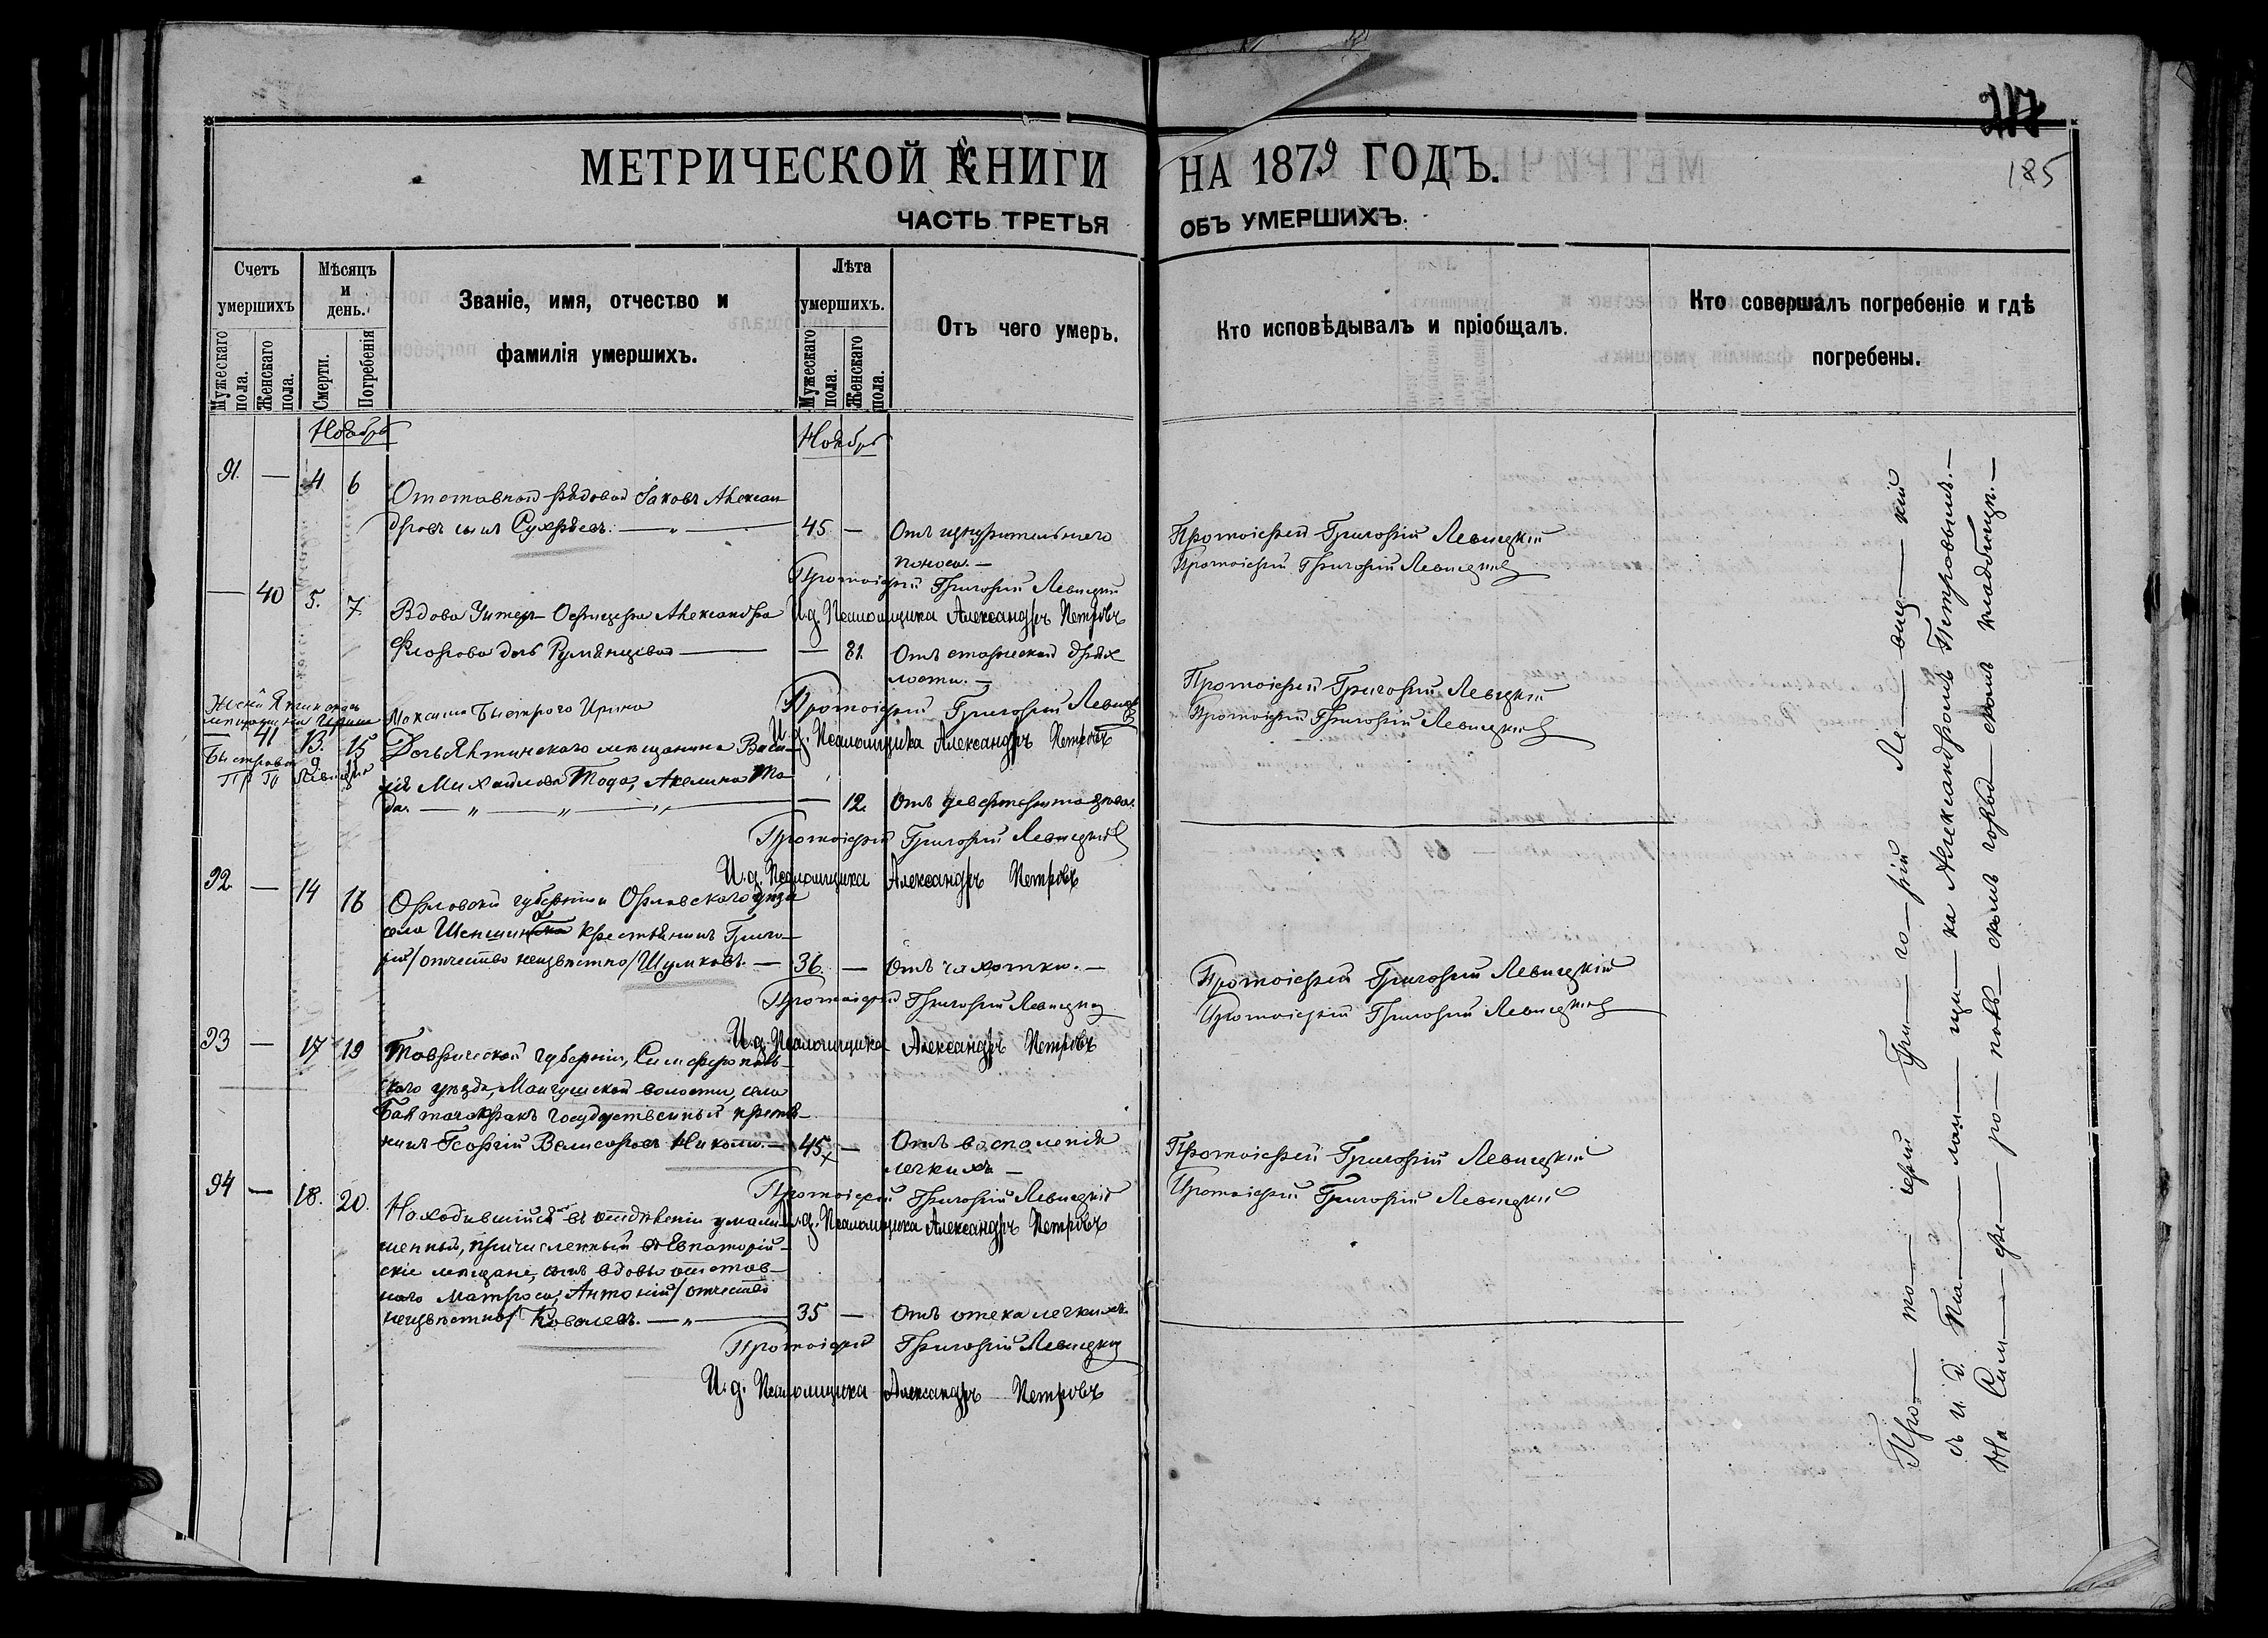 217
185
МЕТРИЧЕСКОЙ КНИГИ НА 1879 ГОДЪ.
ЧАСТЬ ТРЕТЬЯ ОБЪ УМЕРШИХЪ.
Счетъ умершихъ
Мужескаго пола.
Женскаго пола.
Мѣсяцъ и день.
Смерти.
Погребенія
Званіе, имя, отчество и
фамилія умершихъ.
Лѣта умершихъ.
Мужескаго пола.
Женскаго пола.
Отъ чего умеръ.
Кто исповѣдывалъ и пріобщалъ.
Кто совершалъ погребеніе и гдѣ
погребены.
Ноябрь Ноябрь
91. — 4 6 Отставной рядовой Іаковъ Алексан-
дровъ сынъ Сухаревъ. — „ — 45 — Отъ изнурительнаго
поноса. —
Протоіерей Григорій Левицкій
Протоіерей Григорій Левицкій
Протоіерей Григорій Левицкій
И.д. Псаломщика Александръ Петровъ
— 40 5. 7. Вдова Унтеръ-Офицера Александра
Флорова дочь Румянцева — — 81. Отъ старческой дрях
лости. —
Протоіерей Григорій Левицкій
И.д. Псаломщика Александръ Петровъ
Протоіерей Григорій Левицкій
Протоіерей Григорій Левицкій
мѣщанина Максима Быстрого Ирина
— 41 13. 15 Дочь Ялтинскаго мѣщанина Васи-
Быстрова 9 11
лія Михайлова Тода, Акилина То
да. — „ — „ — „ — — 12. Отъ
Протоіерей Григорій Левицкій
И.д. Псаломщика Александръ Петровъ
92. — 14 16 Орловской губерніи Орловскаго уѣзда
села Шеншина крестьянинъ Григо-
рій /отчество неизвѣстно/ Шумковъ. — 36. — Отъ чахотки. —
Протоіерей Григорій Левицкій
И.д. Псаломщика Александръ Петровъ
Протоіерей Григорій Левицкій
Протоіерей Григорій Левицкій
93 — 17 19 Таврической губерніи, Симферополь-
скаго уѣзда, Мангушской волости, села
государственный крестья-
нинъ Георгій — 45 — Отъ воспаленія
легкихъ —
Протоіерей Григорій Левицкій
И.д. Псаломщика Александръ Петровъ
Протоіерей Григорій Левицкій
Протоіерей Григорій Левицкій
94 — 18. 20. Находившійся въ отдѣленіи умали-
шенный, причисленный въ Евпаторій-
скіе мѣщане, сынъ вдовы отстав-
наго матроса, Антоній /отчество
неизвѣстно/ Ковалевъ. — „ — 35 — Отъ отека легкихъ.
Протоіерей Григорій Левицкій
И.д. Псаломщика Александръ Петровъ
Про — то — іерей Гри — го — рій Ле — виц — кій
съ И. Д. Пса — лом — щи — ка Александромъ Петровымъ. —
На Сим — фе — ро — поль — скомъ город — скомъ кладбищѣ. —